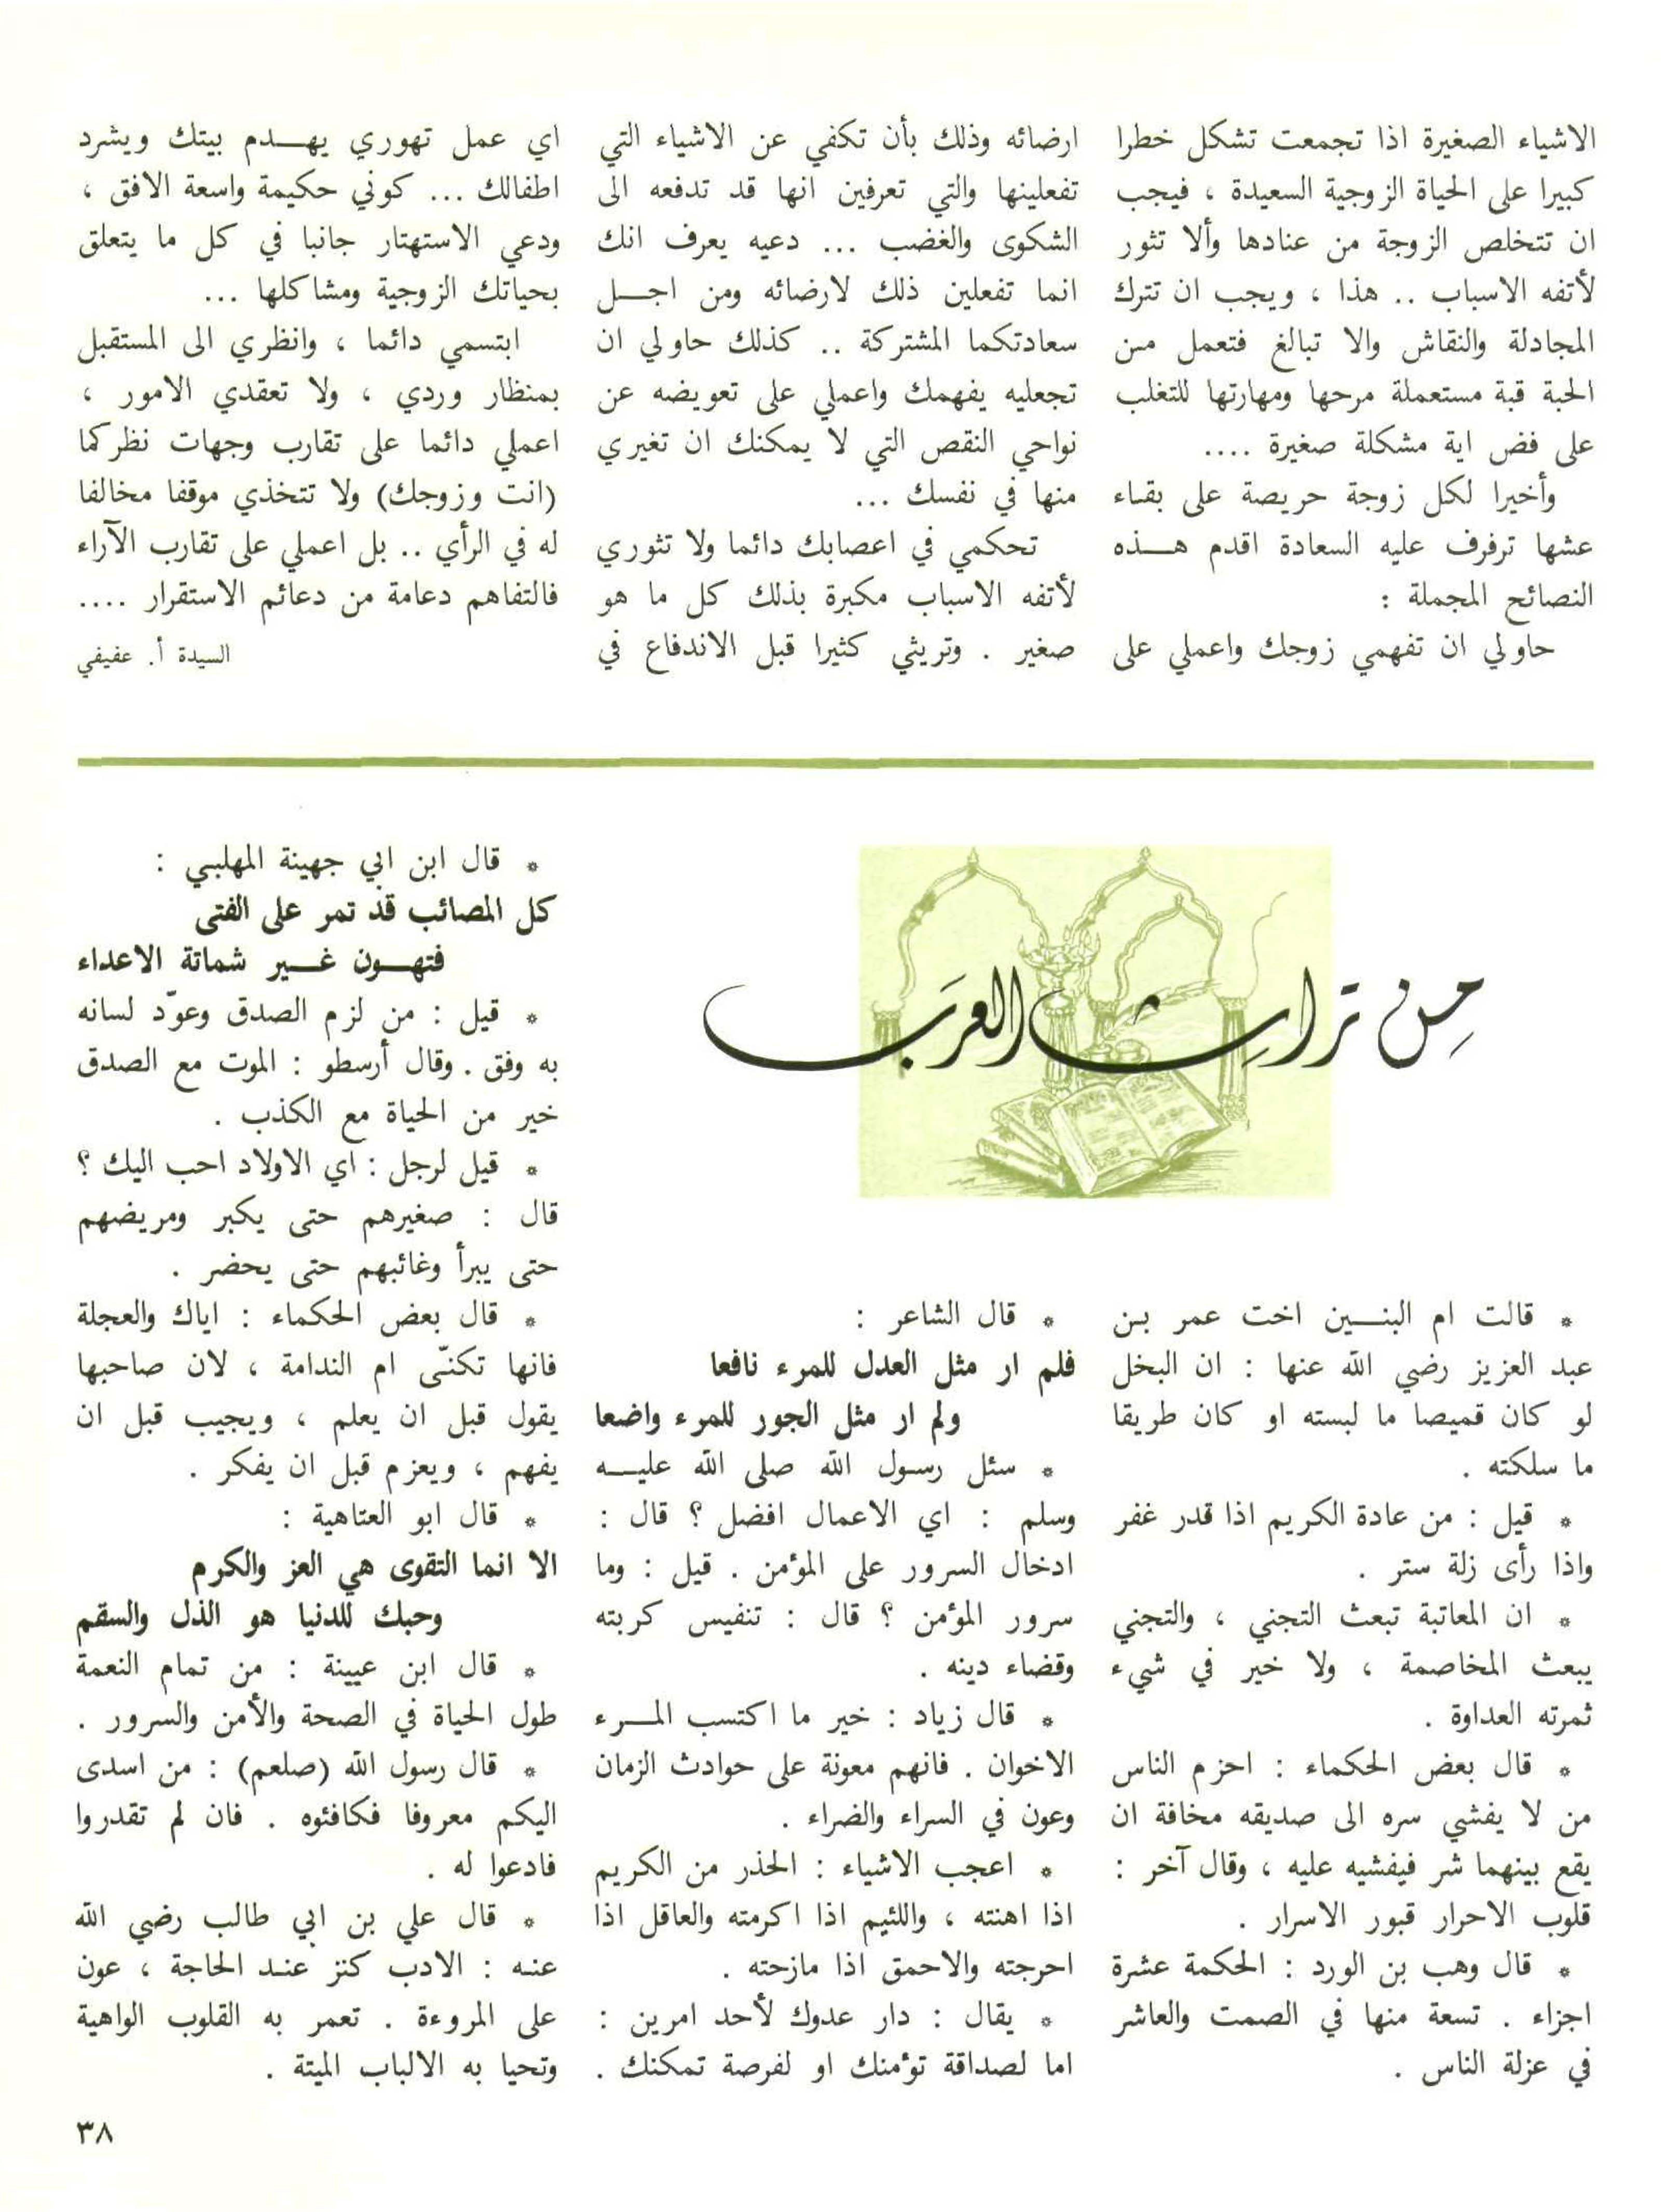 الاشياء الصغيرة اذا تجمعت تشكل خطرا
كبيرا على الحياة الزوجية السعيدة ، فيجب
ان تتخلص الزوجة من عنادها وألا تثور
لأتفه الاسباب .. هذا ، ويجب ان تترك
المجادلة والنقاش والا تبالغ فتعمل من
الحبة قبة مستعملة مرحها ومهارتها للتغلب
على فض اية مشكلة صغيرة ....
وأخيرا لكل زوجة حريصة على بقاء
عشها ترفرف عليه السعادة اقدم هـــذه
النصائح المجملة :
حاولي ان تفهمي زوجك واعملي على
ارضائه وذلك بأن تكفي عن الاشياء التي
تفعلينها والتي تعرفين انها قد تدفعه الى
الشكوى والغضب ... دعيه يعرف انك
انما تفعلين ذلك لارضائه ومن اجـــل
سعادتكما المشتركة .. كذلك حاولي ان
تجعليه يفهمك واعملي على تعويضه عن
نواحي النقص التي لا يمكنك ان تغيري
منها في نفسك ...
تحكمي في اعصابك دائما ولا تثوري
لأتفه الاسباب مكبرة بذلك كل ما هو
صغير . وتريثي كثيرا قبل الاندفاع في
اي عمل تهوري يهـــدم بيتك ويشرد
اطفالك ... كوني حكيمة واسعة الافق ،
ودعي الاستهتار جانبا في كل ما يتعلق
بحياتك الزوجية ومشاكلها ...
ابتسمي دائما ، وانظري الى المستقبل
بمنظار وردي ، ولا تعقدي الامور ،
اعملي دائما على تقارب وجهات نظركما
(انت وزوجك) ولا تتخذي موقفا مخالفا
له في الرأي .. بل اعملي على تقارب الآراء
فالتفاهم دعامة من دعائم الاستقرار ....
السيدة أ. عفيفي
مِن تراثِ العرَب
* قالت ام البنـــين اخت عمر بـن
عبد العزيز رضي الله عنها : ان البخل
لو كان قميصا ما لبسته او كان طريقا
ما سلكته .
* قيل : من عادة الكريم اذا قدر غفر
واذا رأى زلة ستر .
* ان المعاتبة تبعث التجني ، والتجني
يبعث المخاصمة ، ولا خير في شيء
ثمرته العداوة .
* قال بعض الحكماء : احزم الناس
من لا يفشي سره الى صديقه مخافة ان
يقع بينهما شر فيفشيه عليه ، وقال آخر :
قلوب الاحرار قبور الاسرار .
* قال وهب بن الورد : الحكمة عشرة
اجزاء . تسعة منها في الصمت والعاشر
في عزلة الناس .
* قال الشاعر :
فلم ار مثل العدل للمرء نافعا
ولم ار مثل الجور للمرء واضعا
* سئل رسول الله صلى الله عليـــه
وسلم : اي الاعمال افضل ؟ قال :
ادخال السرور على المؤمن . قيل : وما
سرور المؤمن ؟ قال : تنفيس كربته
وقضاء دينه .
* قال زياد : خير ما اكتسب المـــرء
الاخوان . فانهم معونة على حوادث الزمان
وعون في السراء والضراء .
* اعجب الاشياء : الحذر من الكريم
اذا اهنته ، واللئيم اذا اكرمته والعاقل اذا
احرجته والاحمق اذا مازحته .
* يقال : دار عدوك لأحد امرين :
اما لصداقة تؤمنك او لفرصة تمكنك .
* قال ابن ابي جهينة المهلبي :
كل المصائب قد تمر على الفتى
فتهـــون غـــير شماتة الاعداء
* قيل : من لزم الصدق وعوّد لسانه
به وفق . وقال أرسطو : الموت مع الصدق
خير من الحياة مع الكذب .
* قيل لرجل : اي الاولاد احب اليك ؟
قال : صغيرهم حتى يكبر ومريضهم
حتى يبرأ وغائبهم حتى يحضر .
* قال بعض الحكماء : اياك والعجلة
فانها تكنّى ام الندامة ، لان صاحبها
يقول قبل ان يعلم ، ويجيب قبل ان
يفهم ، ويعزم قبل ان يفكر .
* قال ابو العتاهية :
الا انما التقوى هي العز والكرم
وحبك للدنيا هو الذل والسقم
* قال ابن عيينة : من تمام النعمة
طول الحياة في الصحة والأمن والسرور .
* قال رسول الله (صلعم) : من اسدى
اليكم معروفا فكافئوه . فان لم تقدروا
فادعوا له .
* قال علي بن ابي طالب رضي الله
عنه : الادب كنز عند الحاجة ، عون
على المروءة . تعمر به القلوب الواهية
وتحيا به الالباب الميتة .
٣٨